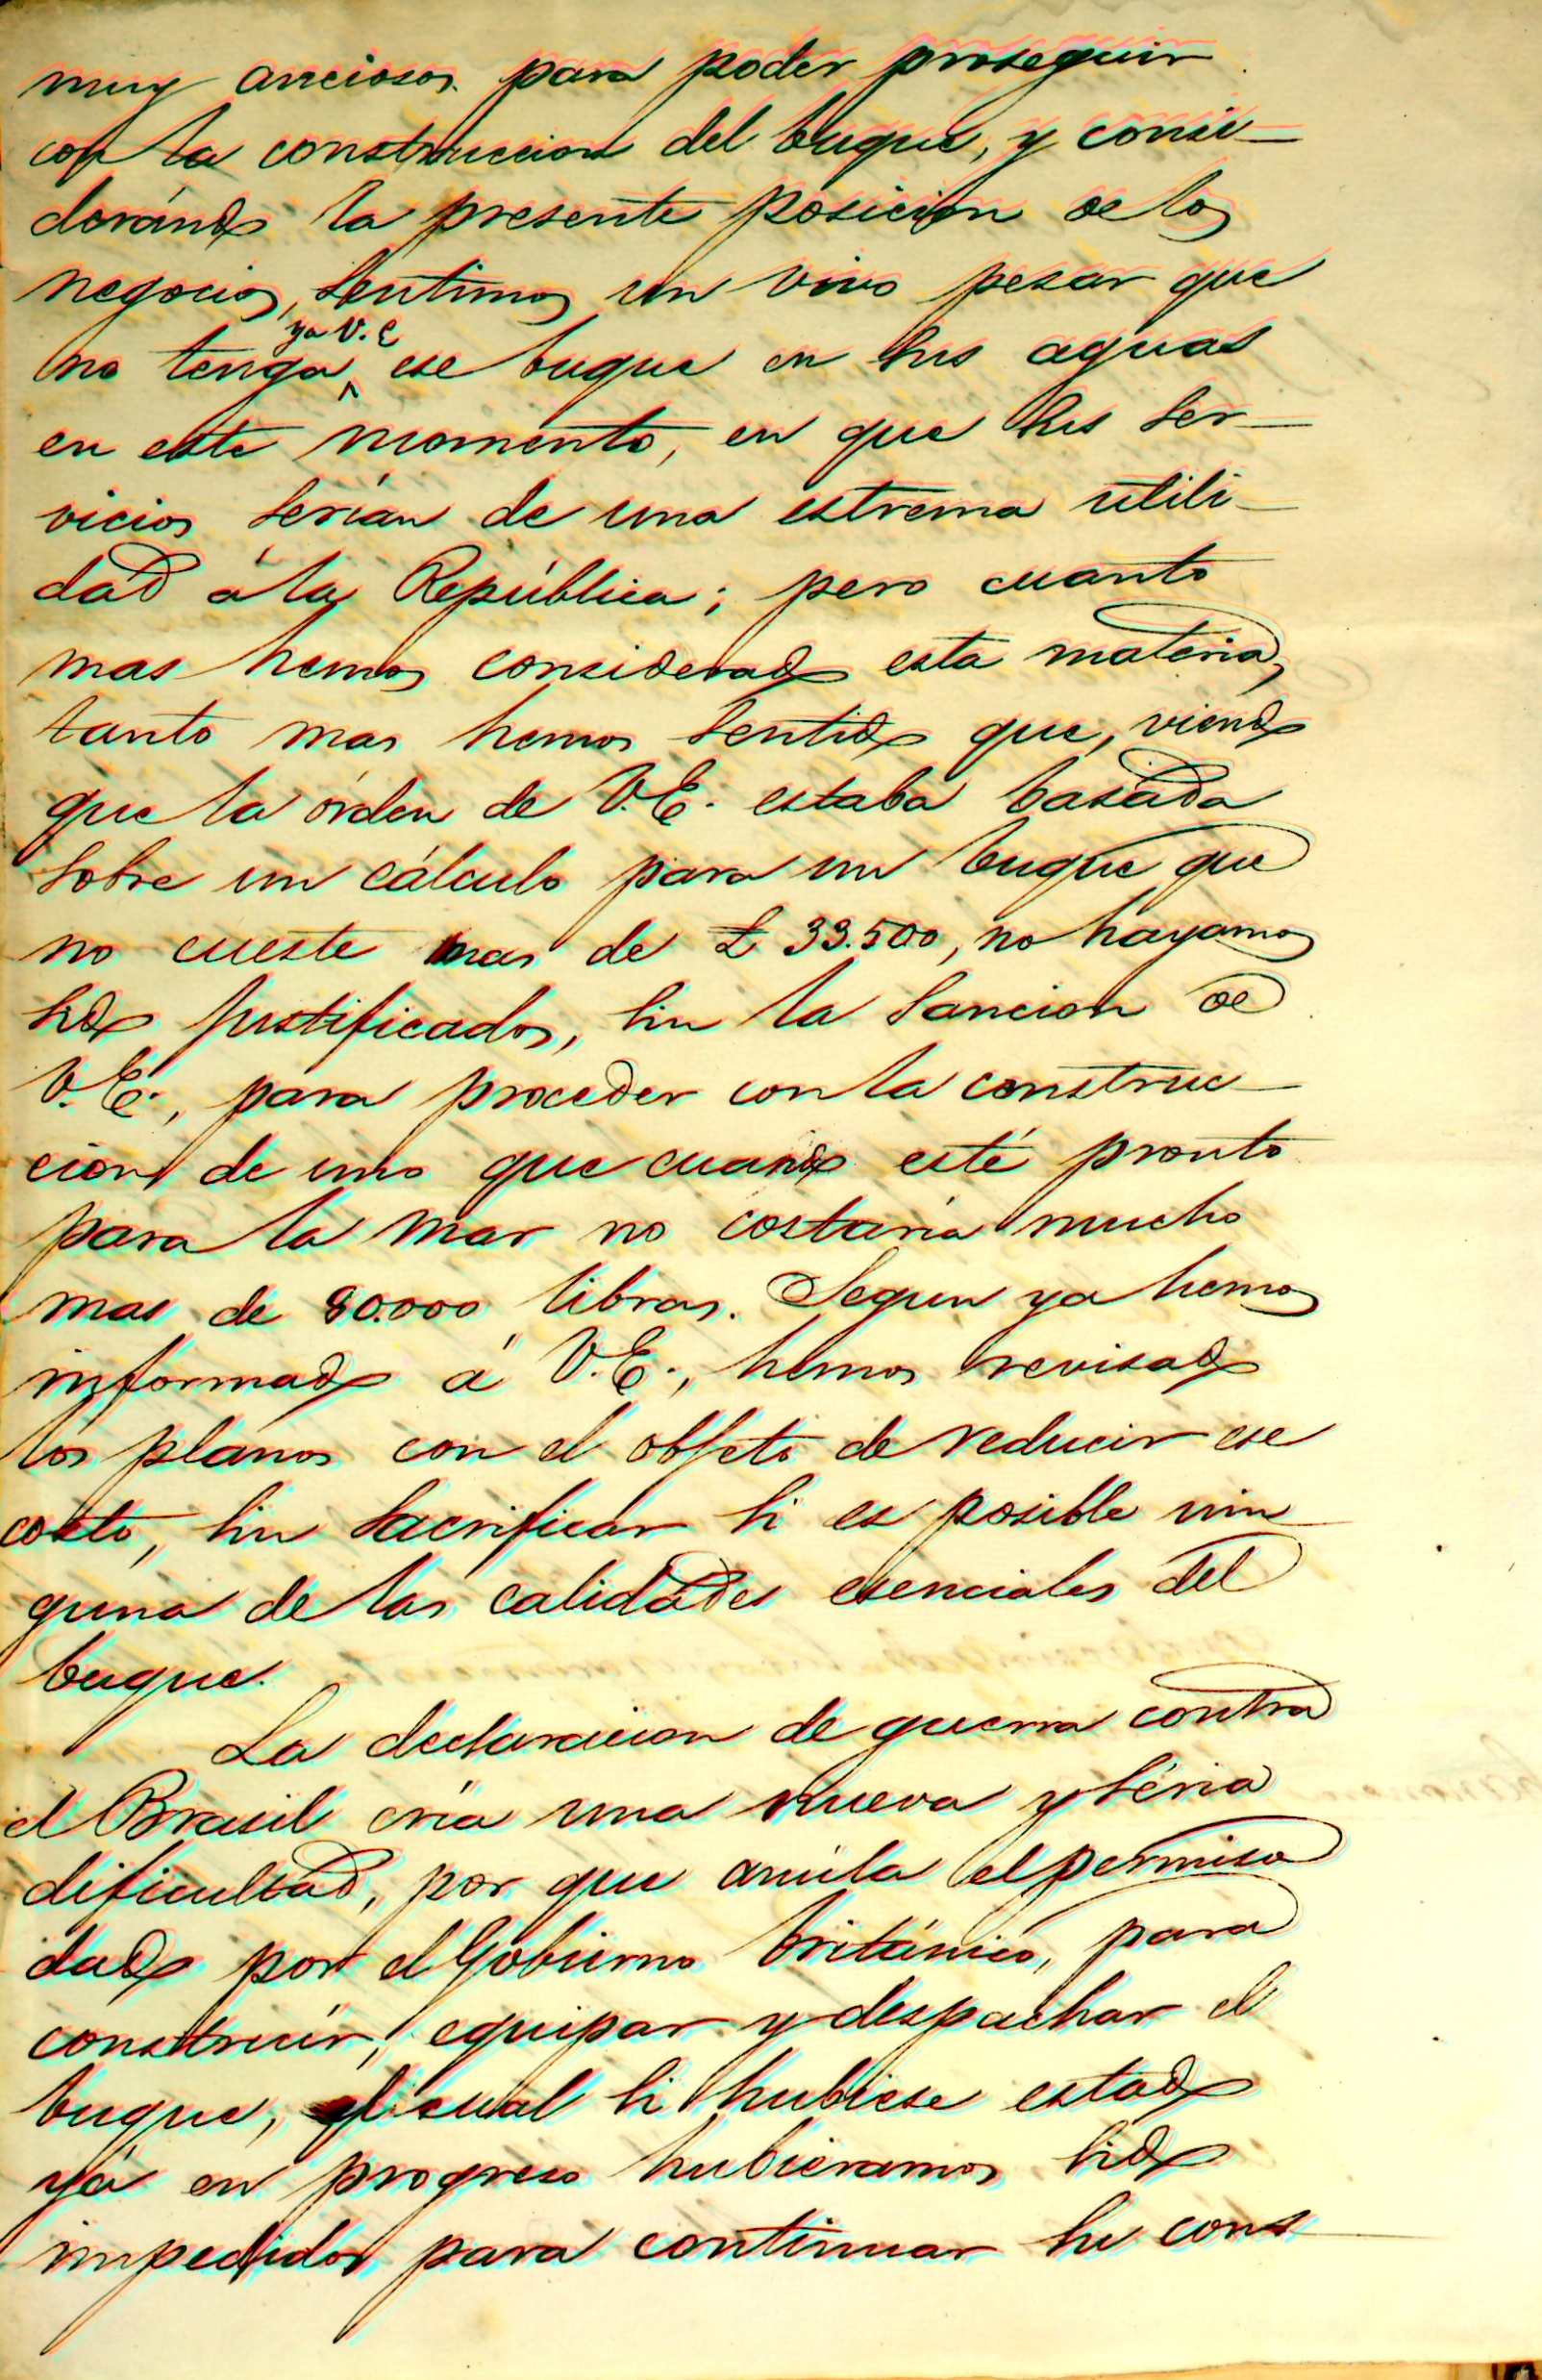 muy anciosos para poder proseguir
con la construccion del buque, y consi-
derándo la presente posicion de los
negocios, sentimos un vivo pesar que
no tenga ya V.E ese buque en sus aguas
en este momento, en que sus ser-
vicios serían de una estrema utili-
dad á la República; pero cuanto
mas hemos considerado esta materia,
tanto mas hemos sentido que, viendo
que la órden de V.E. estaba basada
sobre un cálculo para un buque que
no cueste mas de £ 33.500, no hayamos
sido justificados, sin la sancion de
V.E., para proceder con la construc-
cion de uno que cuando esté pronto
para la mar no costaria mucho
mas de 80.000 libras. Segun ya hemos
informado á V.E., hemos revisado
los planos con el objeto de reducir ese
costo, sin sacrificar si es posible nin-
guna de las calidades esenciales del
buque.
La declaracion de guerra contra
el Brasil cria una nueva y séria
dificultad, por que anula el permiso
dado por el Gobierno británico, para
construir, equipar y despachar el
buque, el cual si hubiese estado
yá en progreso hubieramos sido
impedidos para continuar su cons-